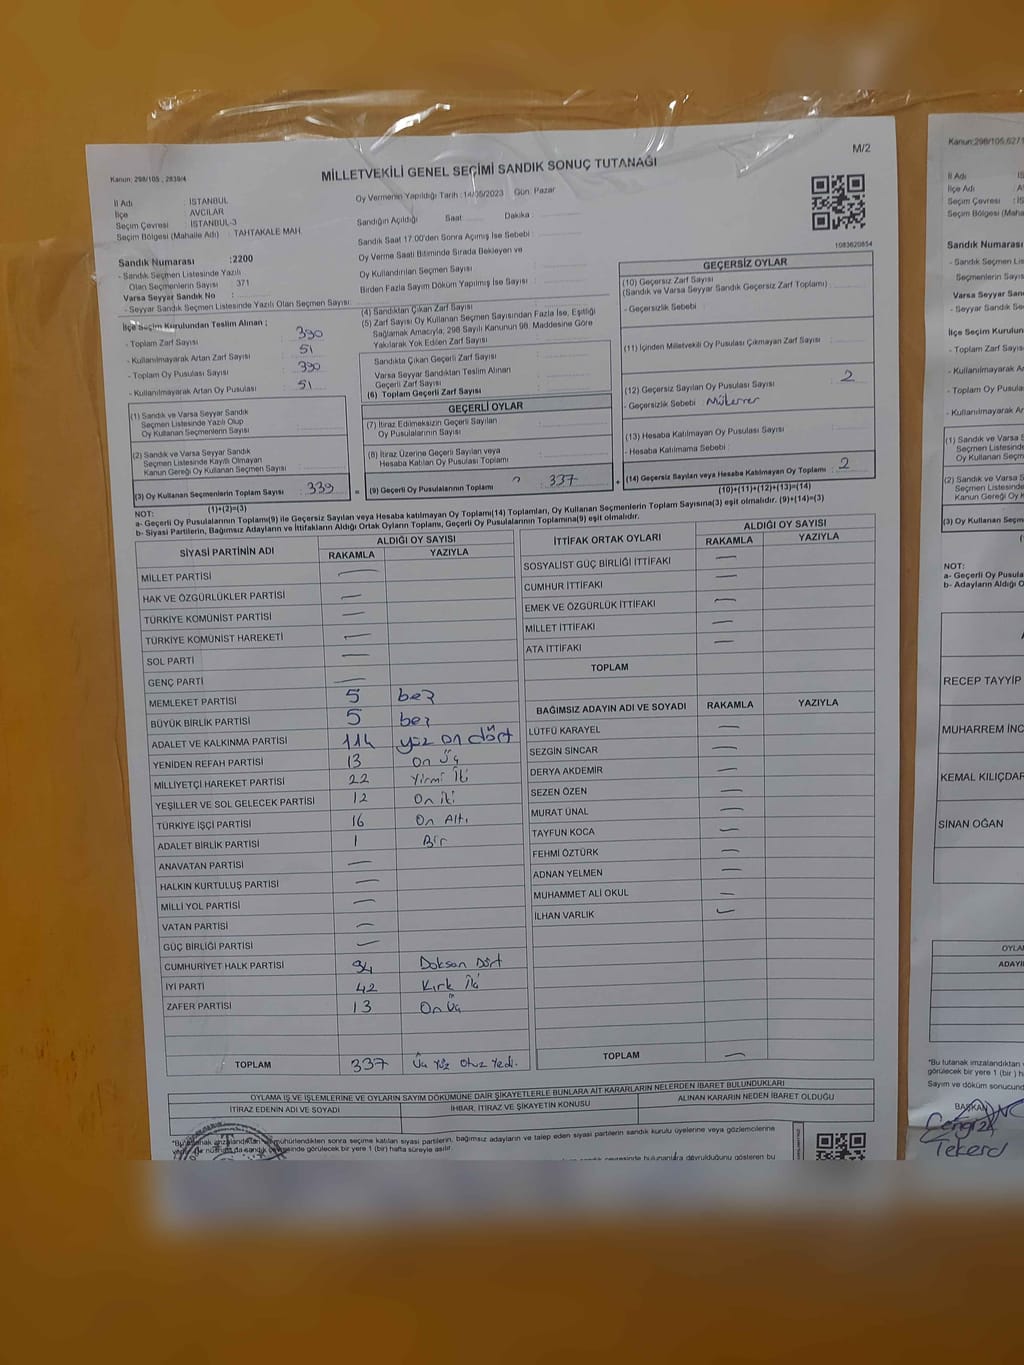 M/2
Kanun: 298/105, 2839/4
MİLLETVEKİLİ GENEL SEÇİMİ SANDIK SONUÇ TUTANAĞI
İl Adı : İSTANBUL
İlçe : AVCILAR
Seçim Çevresi : İSTANBUL-3
Seçim Bölgesi (Mahalle Adı) : TAHTAKALE MAH.
Oy Vermenin Yapıldığı Tarih : 14/05/2023 Gün: Pazar
Sandığın Açıldığı Saat Dakika :
Sandık Saat 17:00'den Sonra Açılmış İse Sebebi :
Oy Verme Saati Bitiminde Sırada Bekleyen ve
Oy Kullandırılan Seçmen Sayısı
Birden Fazla Sayım Döküm Yapılmış İse Sayısı :
1083620854
Sandık Numarası : 2200
- Sandık Seçmen Listesinde Yazılı
Olan Seçmenlerin Sayısı 371
Varsa Seyyar Sandık No :
- Seyyar Sandık Seçmen Listesinde Yazılı Olan Seçmen Sayısı:
İlçe Seçim Kurulundan Teslim Alınan ;
- Toplam Zarf Sayısı : 390
- Kullanılmayarak Artan Zarf Sayısı : 51
- Toplam Oy Pusulası Sayısı : 390
- Kullanılmayarak Artan Oy Pusulası : 51
(1) Sandık ve Varsa Seyyar Sandık
Seçmen Listesinde Yazılı Olup
Oy Kullanan Seçmenlerin Sayısı :
(2) Sandık ve Varsa Seyyar Sandık
Seçmen Listesinde Kayıtlı Olmayan
Kanun Gereği Oy Kullanan Seçmen Sayısı :
(3) Oy Kullanan Seçmenlerin Toplam Sayısı : 339
(1)+(2)=(3)
(4) Sandıktan Çıkan Zarf Sayısı :
(5) Zarf Sayısı Oy Kullanan Seçmen Sayısından Fazla İse, Eşitliği
Sağlamak Amacıyla; 298 Sayılı Kanunun 98. Maddesine Göre
Yakılarak Yok Edilen Zarf Sayısı :
Sandıkta Çıkan Geçerli Zarf Sayısı :
Varsa Seyyar Sandıktan Teslim Alınan
Geçerli Zarf Sayısı :
(6) Toplam Geçerli Zarf Sayısı :
GEÇERLİ OYLAR
(7) İtiraz Edilmeksizin Geçerli Sayılan
Oy Pusulalarının Sayısı :
(8) İtiraz Üzerine Geçerli Sayılan veya
Hesaba Katılan Oy Pusulası Toplamı :
= (9) Geçerli Oy Pusulalarının Toplamı : 337 +
GEÇERSİZ OYLAR
(10) Geçersiz Zarf Sayısı
(Sandık ve Varsa Seyyar Sandık Geçersiz Zarf Toplamı) :
- Geçersizlik Sebebi :
(11) İçinden Milletvekili Oy Pusulası Çıkmayan Zarf Sayısı :
(12) Geçersiz Sayılan Oy Pusulası Sayısı : 2
- Geçersizlik Sebebi : Mükerrer
(13) Hesaba Katılmayan Oy Pusulası Sayısı :
- Hesaba Katılmama Sebebi :
(14) Geçersiz Sayılan veya Hesaba Katılmayan Oy Toplamı : 2
(10)+(11)+(12)+(13)=(14)
NOT:
a- Geçerli Oy Pusulalarının Toplamı(9) ile Geçersiz Sayılan veya Hesaba katılmayan Oy Toplamı(14) Toplamları, Oy Kullanan Seçmenlerin Toplam Sayısına(3) eşit olmalıdır. (9)+(14)=(3)
b- Siyasi Partilerin, Bağımsız Adayların ve İttifakların Aldığı Ortak Oyların Toplamı, Geçerli Oy Pusulalarının Toplamına(9) eşit olmalıdır.
SİYASİ PARTİNİN ADI ALDIĞI OY SAYISI
RAKAMLA YAZIYLA
MİLLET PARTİSİ —
HAK VE ÖZGÜRLÜKLER PARTİSİ —
TÜRKİYE KOMÜNİST PARTİSİ —
TÜRKİYE KOMÜNİST HAREKETİ —
SOL PARTİ —
GENÇ PARTİ —
MEMLEKET PARTİSİ 5 beş
BÜYÜK BİRLİK PARTİSİ 5 beş
ADALET VE KALKINMA PARTİSİ 114 yüz on dört
YENİDEN REFAH PARTİSİ 13 On üç
MİLLİYETÇİ HAREKET PARTİSİ 22 Yirmi İki
YEŞİLLER VE SOL GELECEK PARTİSİ 12 On iki
TÜRKİYE İŞÇİ PARTİSİ 16 On Altı
ADALET BİRLİK PARTİSİ 1 Bir
ANAVATAN PARTİSİ —
HALKIN KURTULUŞ PARTİSİ —
MİLLİ YOL PARTİSİ —
VATAN PARTİSİ —
GÜÇ BİRLİĞİ PARTİSİ —
CUMHURİYET HALK PARTİSİ 94 Doksan Dört
İYİ PARTİ 42 Kırk İki
ZAFER PARTİSİ 13 On üç
TOPLAM 337 Üç Yüz Otuz Yedi.
İTTİFAK ORTAK OYLARI ALDIĞI OY SAYISI
RAKAMLA YAZIYLA
SOSYALİST GÜÇ BİRLİĞİ İTTİFAKI —
CUMHUR İTTİFAKI —
EMEK VE ÖZGÜRLÜK İTTİFAKI —
MİLLET İTTİFAKI —
ATA İTTİFAKI —
TOPLAM
BAĞIMSIZ ADAYIN ADI VE SOYADI RAKAMLA YAZIYLA
LÜTFÜ KARAYEL —
SEZGİN SİNCAR —
DERYA AKDEMİR —
SEZEN ÖZEN —
MURAT ÜNAL —
TAYFUN KOCA —
FEHMİ ÖZTÜRK —
ADNAN YELMEN —
MUHAMMET ALİ OKUL —
İLHAN VARLIK —
TOPLAM —
OYLAMA İŞ VE İŞLEMLERİNE VE OYLARIN SAYIM DÖKÜMÜNE DAİR ŞİKAYETLERLE BUNLARA AİT KARARLARIN NELERDEN İBARET BULUNDUKLARI
İTİRAZ EDENİN ADI VE SOYADI İHBAR, İTİRAZ VE ŞİKAYETİN KONUSU ALINAN KARARIN NEDEN İBARET OLDUĞU
mühürlendikten sonra seçime katılan siyasi partilerin, bağımsız adayların ve talep eden siyasi partilerin sandık kurulu üyelerine veya gözlemcilerine
görülecek bir yere 1 (bir) hafta süreyle asılır.
Kanun:298/105,6271
İl Adı
İlçe Adı
Seçim Çevresi
Seçim Bölgesi (Mahall
Sandık Numarası
- Sandık Seçmen Lis
Seçmenlerin Sayıs
Varsa Seyyar Sandı
- Seyyar Sandık Se
İlçe Seçim Kurulund
- Toplam Zarf Sayıs
- Kullanılmayarak A
- Toplam Oy Pusula
- Kullanılmayarak
(1) Sandık ve Varsa S
Seçmen Listesinde
Oy Kullanan Seçm
(2) Sandık ve Varsa
Seçmen Listesinde
Kanun Gereği Oy
(3) Oy Kullanan Seçm
NOT:
a- Geçerli Oy Pusula
b- Adayların Aldığı O
RECEP TAYYİP
MUHARREM İNC
KEMAL KILIÇDAR
SİNAN OĞAN
OYLA
ADAYI
*Bu tutanak imzalandıktan
görülecek bir yere 1 (bir) h
Sayım ve döküm sonucund
BAŞKAN
Cengiz
Tekerd